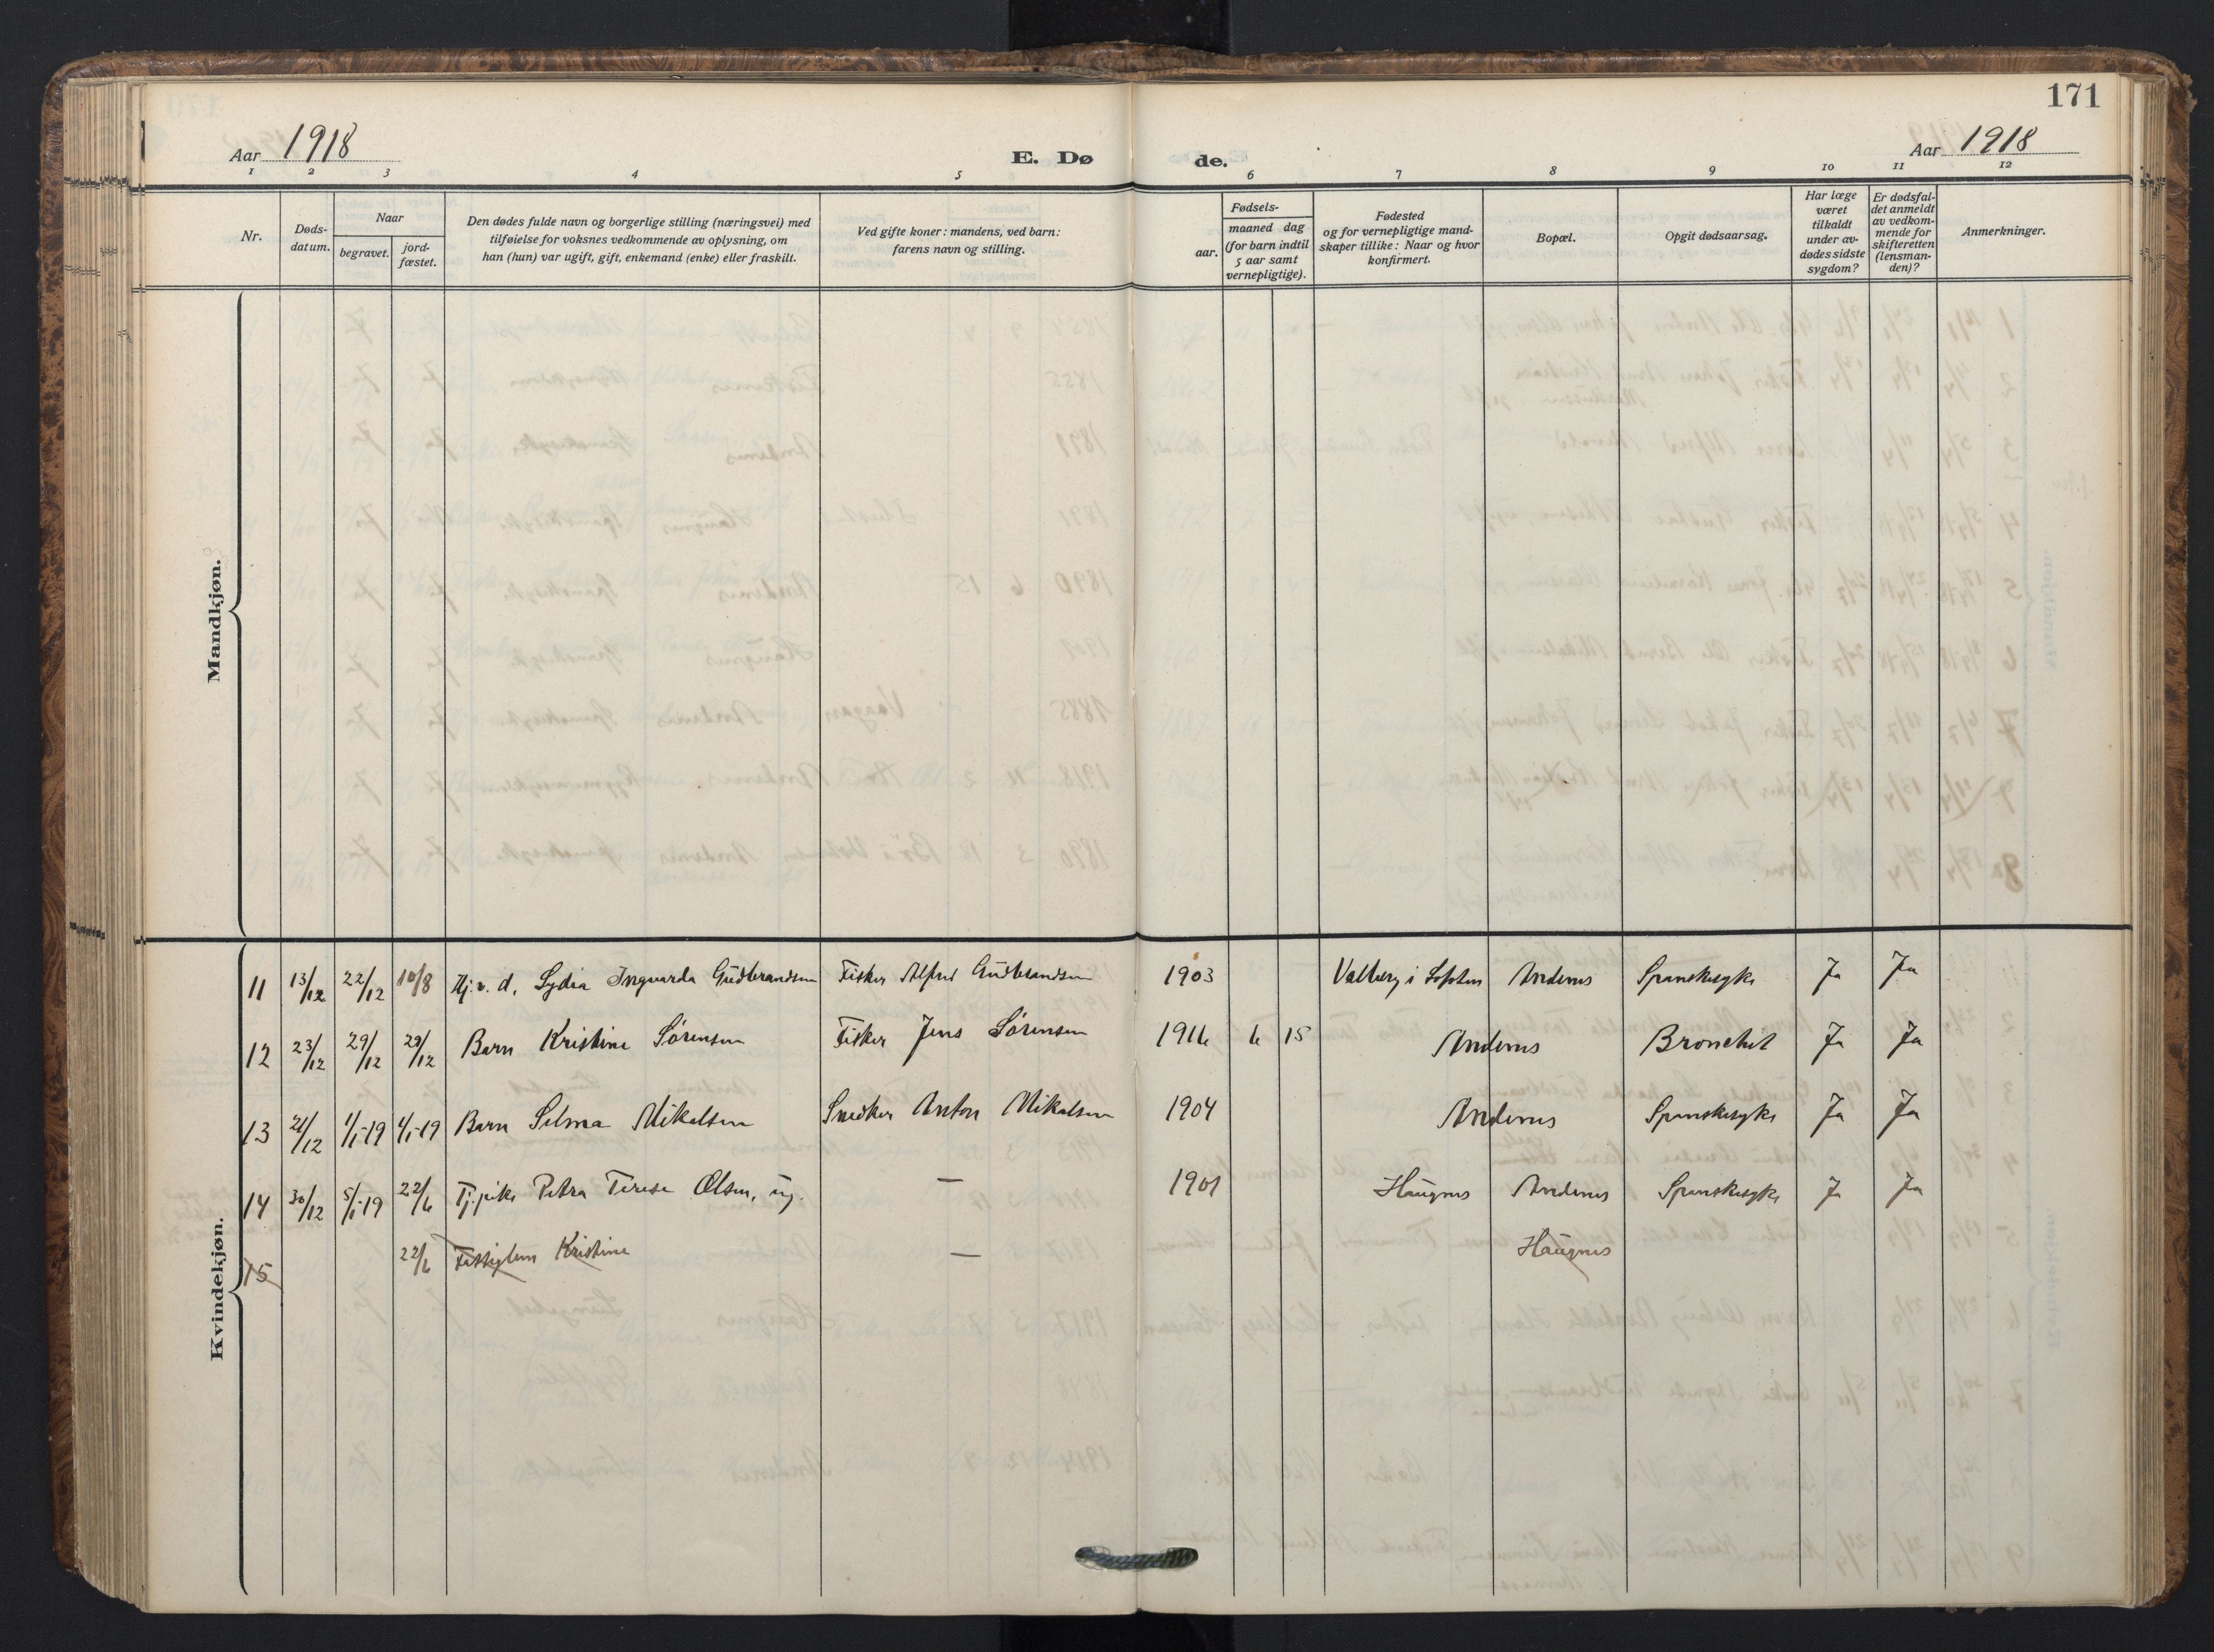 171
Aar 1918
E. Dø
de.
Aar 1918
1 2 3 4 5 6 7 8 9 10 11 12
Nr.
Døds-
datum.
Naar
begravet.
jord-
fæstet.
Den dødes fulde navn og borgerlige stilling (næringsvei) med
tilføielse for voksnes vedkommende av oplysning, om
han (hun) var ugift, gift, enkemand (enke) eller fraskilt.
Ved gifte koner: mandens, ved barn:
farens navn og stilling.
Fødsels-
aar.
maaned dag
(for barn indtil
5 aar samt
vernepligtige).
Fødested
og for vernepligtige mand-
skaper tillike: Naar og hvor
konfirmert.
Bopæl.
Opgit dødsaarsag.
Har læge
været
tilkaldt
under av-
dødes sidste
sygdom?
Er dødsfal-
det anmeldt
av vedkom-
mende for
skifteretten
(lensman-
den)?
Anmerkninger.
Mandkjøn.
Kvindekjøn.
11 13/12 22/12 10/8 Hj.v. d. Lydia Ingvarda Gudbrandsen Fisker Alfred Gudbrandsen 1903 Valberg i Lofoten Andenes Spanskesyke Ja Ja
12 23/12 29/12 29/12 Barn Kristine Sørensen Fisker Jens Sørensen 1916 6 15 Andenes Bronchit Ja Ja
13 21/12 1/1-19 4/1-19 Barn Selma Mikalsen Snedker Anton Mikalsen 1904 Andenes Spanskesyke Ja Ja
14 30/12 5/1-19 22/6 Tj.pike Petra Terese Olsen, ug. — 1901 Haugnes Andenes Spanskesyke Ja Ja
15 22/6 Kristine — Haugnes